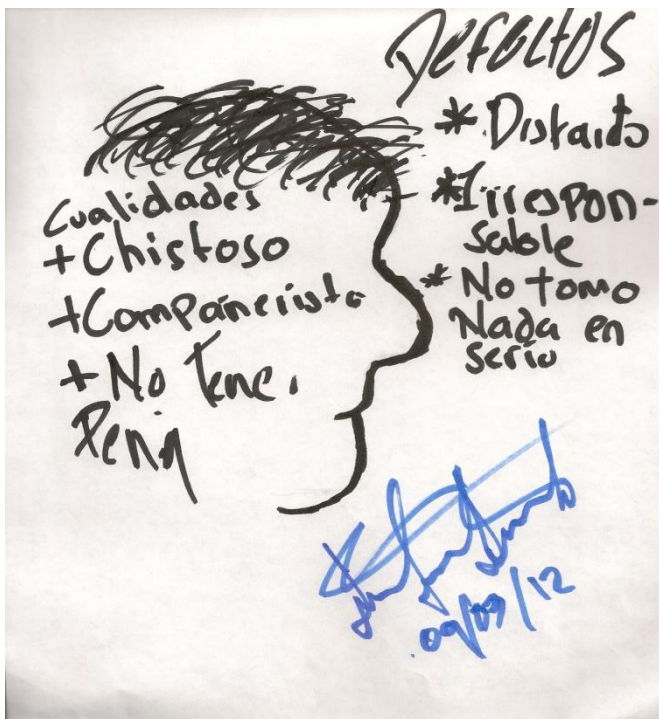 Cualidades
+ Chistoso
+ Compañerista
+ No Tener
Pena
Defectos
* Distraido
* Irrespon-
sable
* No tomo
Nada en
serio
09/09/12